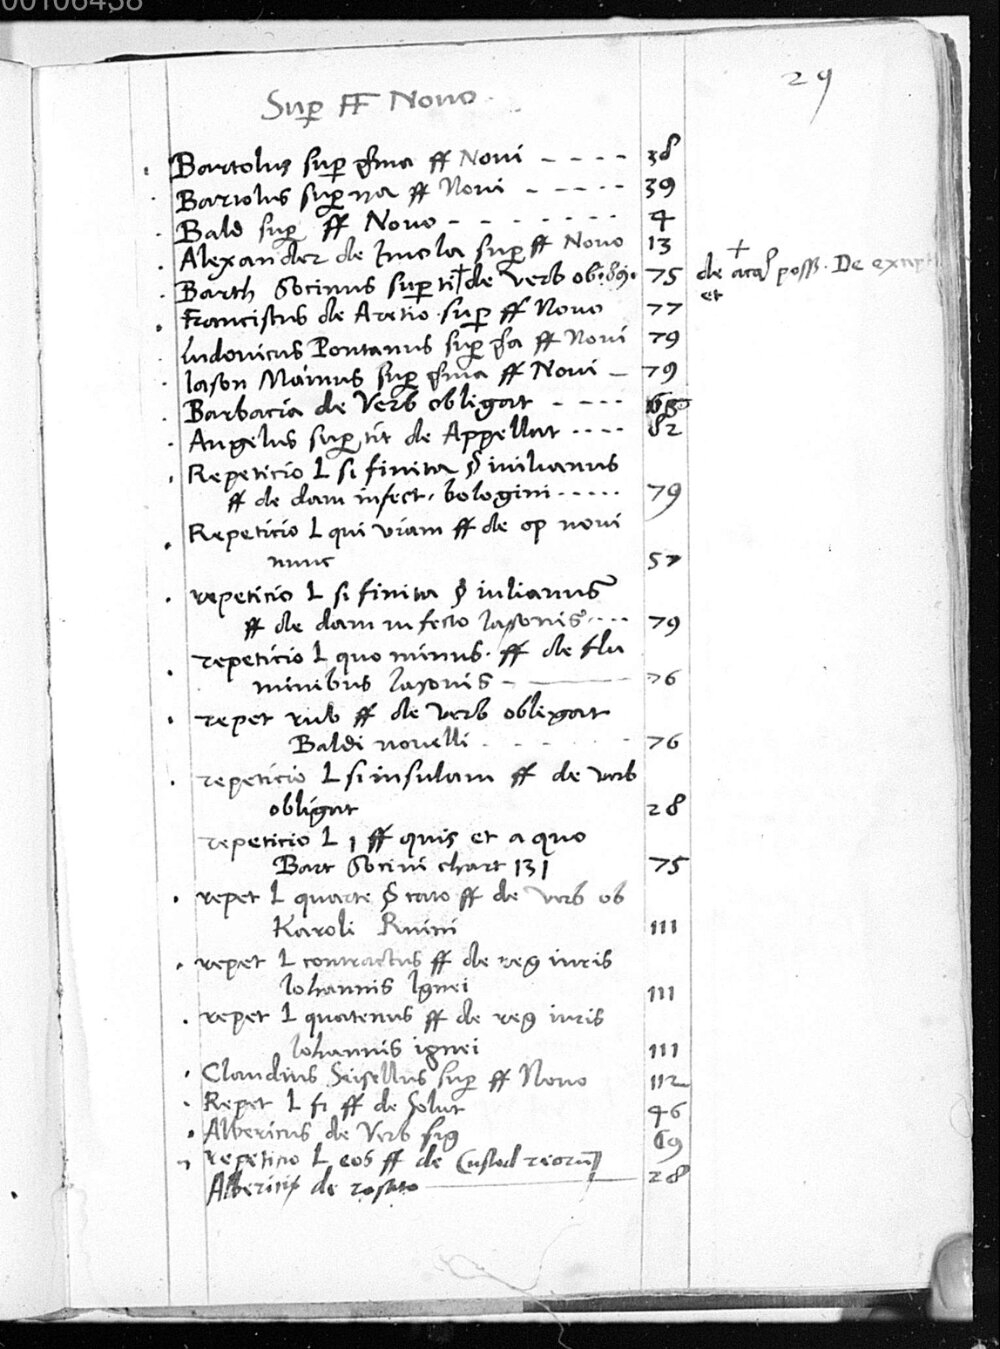 00106438
29
Sup ff Novo
Bartolus sup prima ff Novi - - - - 38
Bartolus sup 2a ff Novi - - - - - 39
Bald sup ff Novo - - - - - - - 4
Alexander de Imola sup ff Novo 13
Barth Socinus sup tit de verb oblig. 75 de acq poss. De except
et
Franciscus de Aretio sup ff Novo 77
Ludovicus Pontanus sup pa ff Novi 79
Iason Mainus sup prima ff Novi - 79
Barbacia de Verb obligat - - - -
Angelus sup tit de Appellat .... 82
Repeticio L si finita § iulianus
ff de dam infect. bologini ..... 79
Repeticio L qui viam ff de op novi
nunc 57
repeticio L si finita § iulianus
ff de dam infecto Iasonis .... 79
repeticio L quo minus. ff de flu
minibus Iasonis - 76
repet rub ff de Verb obligat
Baldi novelli . - - - - - 76
repeticio L si insulam ff de verb
obligat 28
repeticio L 1 ff quis et a quo
Bart Socini chart 131 75
repet L quarte § cato ff de verb ob
Karoli Ruini 111
repet L contractus ff de reg iuris
Iohannis Ignei 111
repet L quatenus ff de reg iuris
Iohannis ignei 111
Claudius Seisellus sup ff Novo 112
Repet L fi ff de Solut 46
Albericus de Verb sig 69
repeticio L eos ff de Custod reorum
Alberici de rosate 28